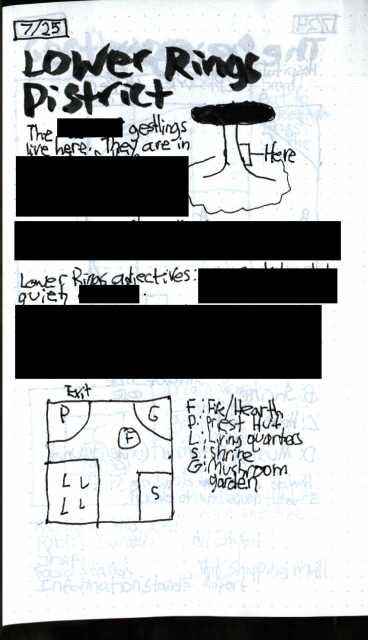 7/25
Lower Rings
District
The gestlings
live here. They are in
Here
Lower Rings adjectives:
quiet
Exit
P
G
F
L L
L L
S
F: Fire/Hearth
P: Priest Hut
L: Living quarters
S: Shrine
G: Mushroom
garden